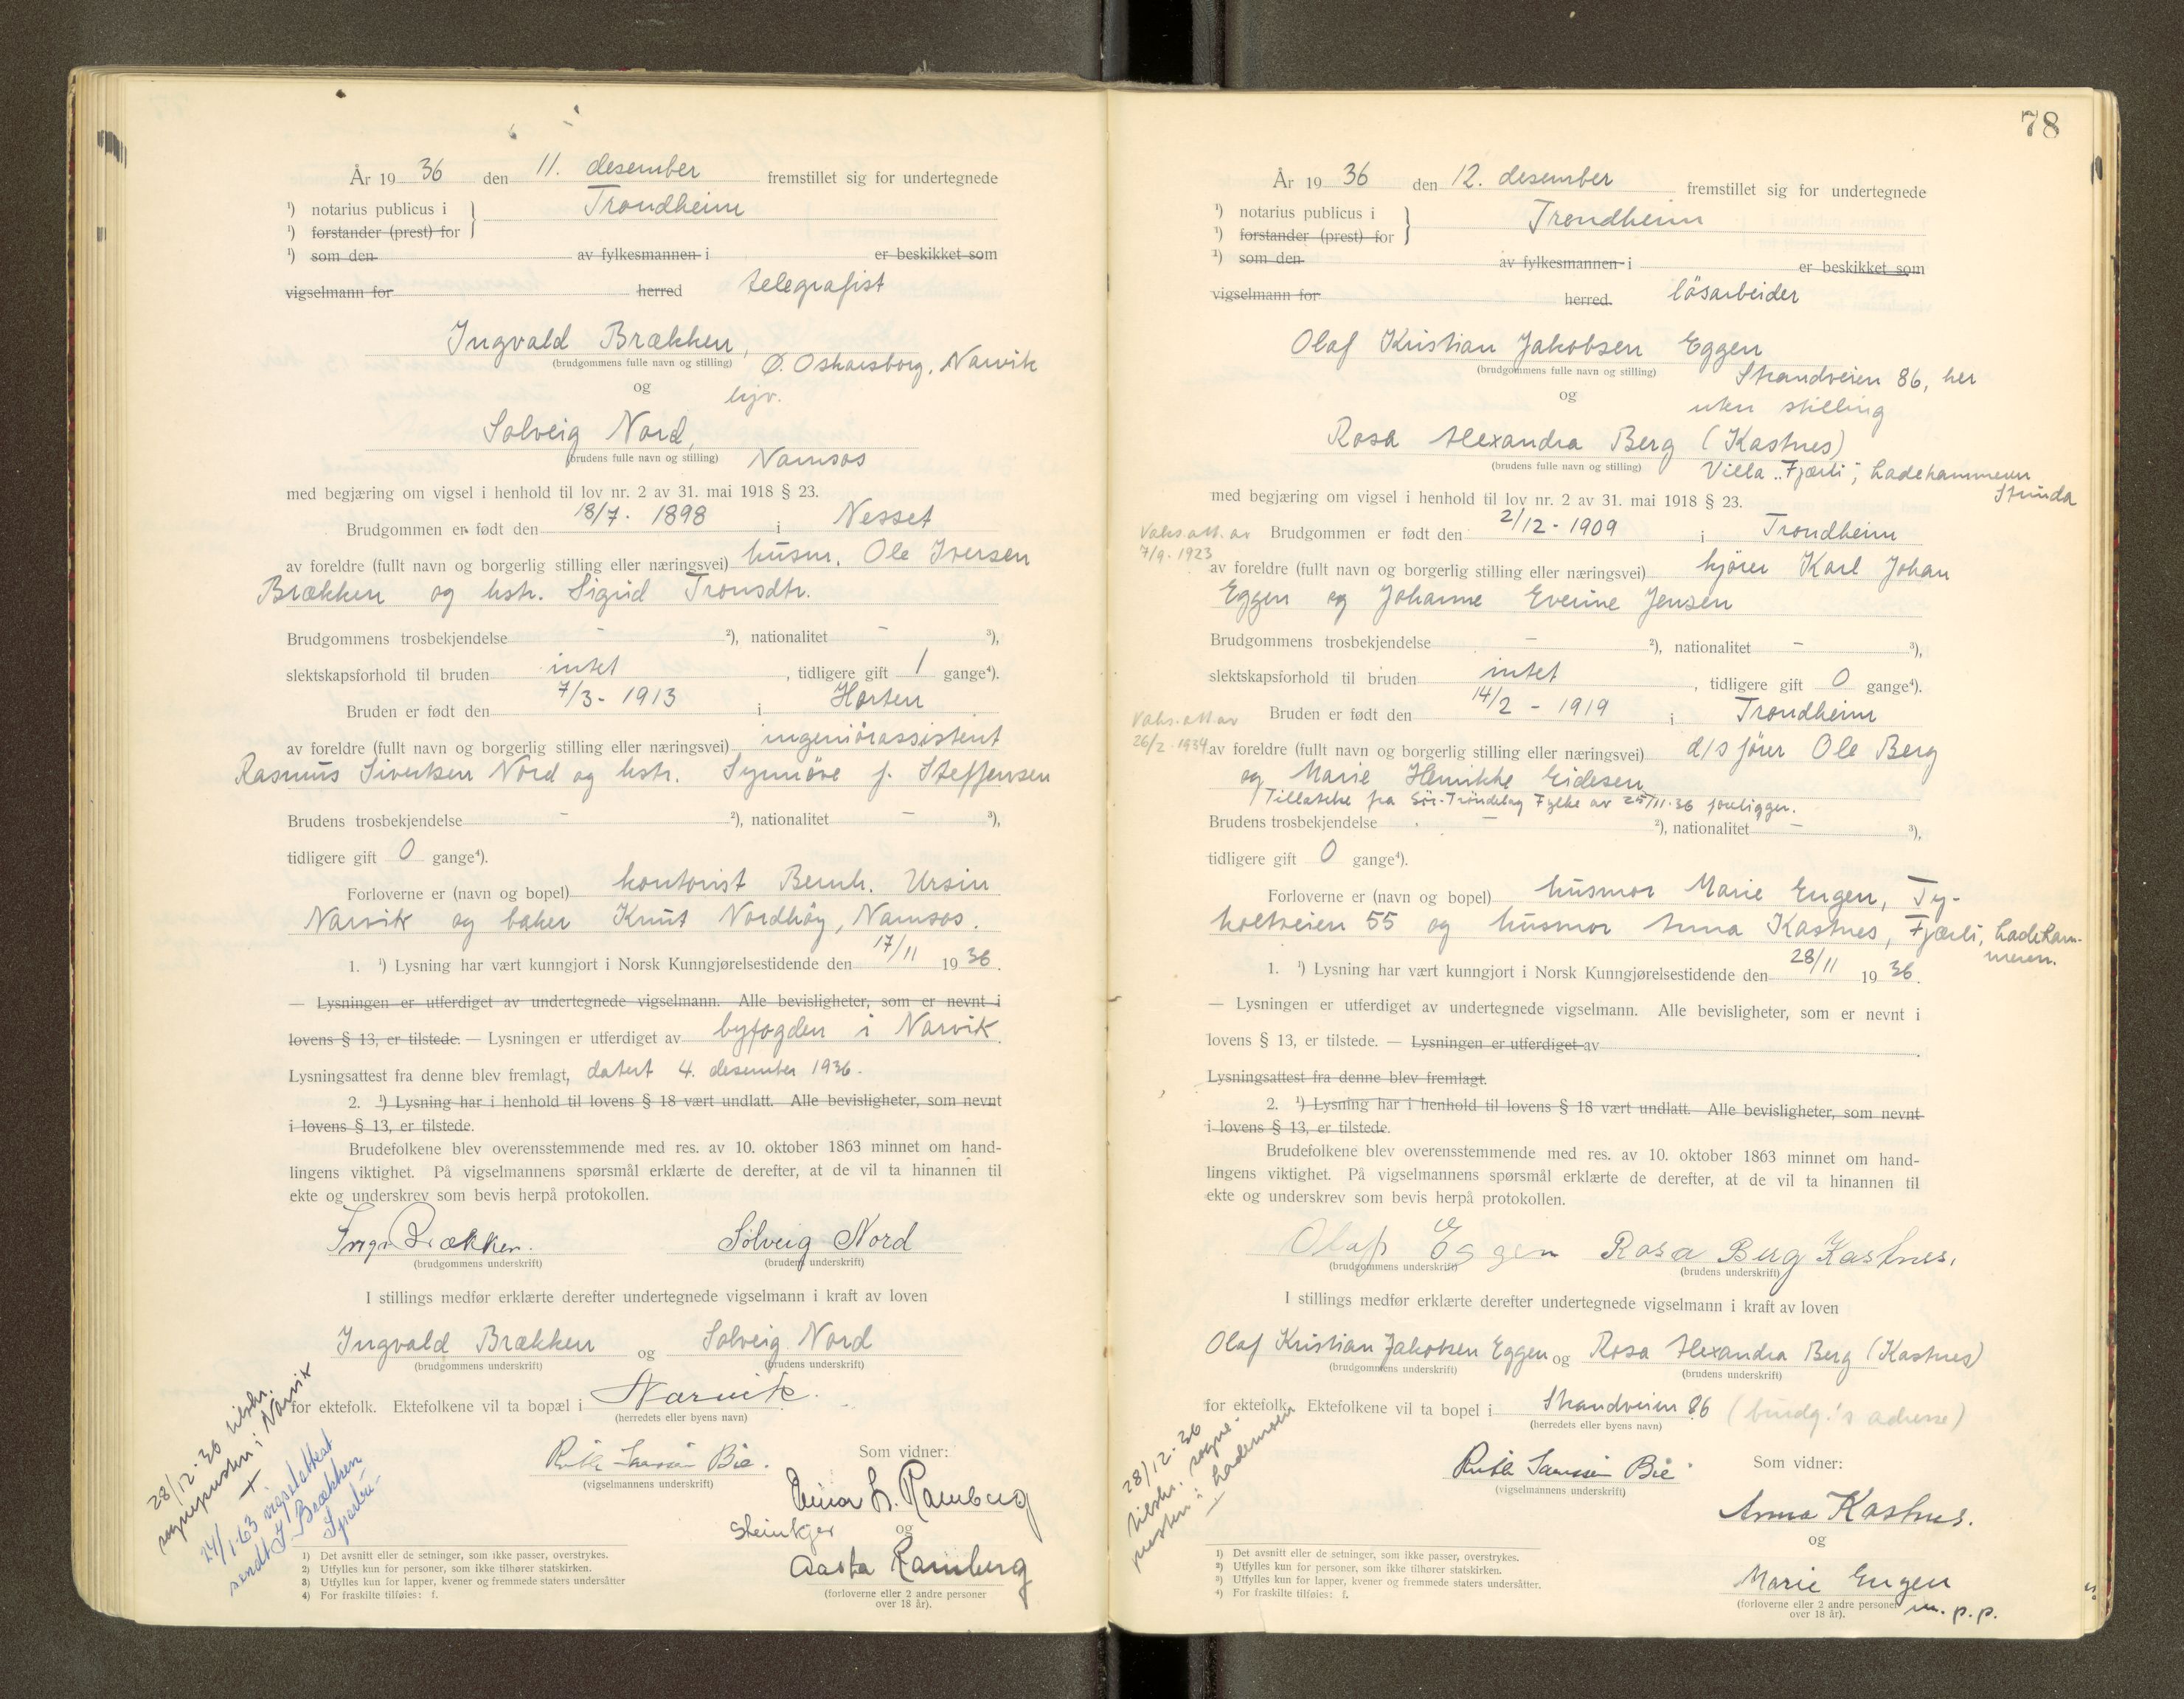 År 19 36 den 11. desember fremstillet sig for undertegnede
¹) notarius publicus i } Trondheim
¹) forstander (prest) for
¹) som den av fylkesmannen i er beskikket som
vigselmann for herred telegrafist
Ingvald Brækken,
(brudgommens fulle navn og stilling) Ø. Oskarsborg, Narvik
og hjv.
Solveig Nord,
(brudens fulle navn og stilling) Namsos
med begjæring om vigsel i henhold til lov nr. 2 av 31. mai 1918 § 23.
Brudgommen er født den 18/7. 1898 i Nesset
av foreldre (fullt navn og borgerlig stilling eller næringsvei) husm. Ole Iversen
Brækken og hstr. Sigrid Tronsdtr.
Brudgommens trosbekjendelse - ²), nationalitet - ³),
slektskapsforhold til bruden intet, tidligere gift 1 gange⁴).
Bruden er født den 7/3 - 1913 i Horten
av foreldre (fullt navn og borgerlig stilling eller næringsvei) ingeniörassistent
Rasmus Sivertsen Nord og hstr. Synnöve f. Steffensen
Brudens trosbekjendelse - ²), nationalitet - ³),
tidligere gift 0 gange⁴).
Forloverne er (navn og bopel) kontorist Bernh. Ursin
Narvik og baker Knut Nordhöy, Namsos.
1. ¹) Lysning har vært kunngjort i Norsk Kunngjørelsestidende den 17/11 19 36.
— Lysningen er utferdiget av undertegnede vigselmann. Alle bevisligheter, som er nevnt i
lovens § 13, er tilstede. — Lysningen er utferdiget av byfogden i Narvik.
Lysningsattest fra denne blev fremlagt, datert 4. desember 1936.
2. ¹) Lysning har i henhold til lovens § 18 vært undlatt. Alle bevisligheter, som nevnt
i lovens § 13, er tilstede.
Brudefolkene blev overensstemmende med res. av 10. oktober 1863 minnet om hand-
lingens viktighet. På vigselmannens spørsmål erklærte de derefter, at de vil ta hinannen til
ekte og underskrev som bevis herpå protokollen.
Ingv Brækken. Solveig Nord
(brudgommens underskrift) (brudens underskrift)
I stillings medfør erklærte derefter undertegnede vigselmann i kraft av loven
Ingvald Brækken og Solveig Nord
(brudgommens underskrift) (brudens underskrift)
for ektefolk. Ektefolkene vil ta bopæl i Narvik.
(herredets eller byens navn)
28/12.36 tilskr.
sognepresten i Narvik
24/1-63 vigselattest
sendt I/Brækken
Sparbu
Som vidner:
Ruth Bie.
(vigselmannens underskrift)
Einar L. Ramberg
Steinkjer og
Aasta Ramberg
(forloverne eller 2 andre personer
over 18 år).
1) Det avsnitt eller de setninger, som ikke passer, overstrykes.
2) Utfylles kun for personer, som ikke tilhører statskirken.
3) Utfylles kun for lapper, kvener og fremmede staters undersåtter
4) For fraskilte tilføies: f.
78
År 19 36 den 12. desember fremstillet sig for undertegnede
¹) notarius publicus i } Trondheim
¹) forstander (prest) for
¹) som den av fylkesmannen i er beskikket som
vigselmann for herred. lösarbeider
Olaf Kristian Jakobsen Eggen
(brudgommens fulle navn og stilling) Strandveien 86, her
og uten stilling
Rosa Alexandra Berg (Kastnes)
(brudens fulle navn og stilling) Villa "Fjærli", Ladehammeren
Strinda
med begjæring om vigsel i henhold til lov nr. 2 av 31. mai 1918 § 23.
Vaks.att. av
7/9. 1923
Brudgommen er født den 2/12 - 1909 i Trondheim
av foreldre (fullt navn og borgerlig stilling eller næringsvei) kjörer Karl Johan
Eggen og Johanne Everine Jensen
Brudgommens trosbekjendelse - ²), nationalitet - ³),
slektskapsforhold til bruden intet, tidligere gift 0 gange⁴).
Vaks. att. av
26/2. 1934
Bruden er født den 14/2 - 1919 i Trondheim
av foreldre (fullt navn og borgerlig stilling eller næringsvei) d/s förer Ole Berg
og Marie Henrikke Eidesen
Tillatelse fra Sör-Tröndelag Fylke av 25/11.36 foreligger.
Brudens trosbekjendelse - ²), nationalitet - ³),
tidligere gift 0 gange⁴).
Forloverne er (navn og bopel) husmor Marie Engen, Ty-
holtveien 55 og husmor Anna Kastnes, Fjærli, Ladeham-
meren.
1. ¹) Lysning har vært kunngjort i Norsk Kunngjørelsestidende den 28/11 19 36.
— Lysningen er utferdiget av undertegnede vigselmann. Alle bevisligheter, som er nevnt i
lovens § 13, er tilstede. — Lysningen er utferdiget av .
Lysningsattest fra denne blev fremlagt.
2. ¹) Lysning har i henhold til lovens § 18 vært undlatt. Alle bevisligheter, som nevnt
i lovens § 13, er tilstede.
Brudefolkene blev overensstemmende med res. av 10. oktober 1863 minnet om hand-
lingens viktighet. På vigselmannens spørsmål erklærte de derefter, at de vil ta hinannen til
ekte og underskrev som bevis herpå protokollen.
Olaf Eggen Rosa Berg Kastnes.
(brudgommens underskrift) (brudens underskrift)
I stillings medfør erklærte derefter undertegnede vigselmann i kraft av loven
Olaf Kristian Jakobsen Eggen og Rosa Alexandra Berg (Kastnes)
(brudgommens underskrift) (brudens underskrift)
for ektefolk. Ektefolkene vil ta bopel i Strandveien 86 (brudg.'s adresse)
(herredets eller byens navn)
28/12.36
tilskr. sogne-
presten i Lademoen
Ruth Bie
(vigselmannens underskrift)
Som vidner:
Anna Kastnes.
og
Marie Engen
m. p. p.
(forloverne eller 2 andre personer
over 18 år).
1) Det avsnitt eller de setninger, som ikke passer, overstrykes.
2) Utfylles kun for personer, som ikke tilhører statskirken.
3) Utfylles kun for lapper, kvener og fremmede staters undersåtter.
4) For fraskilte tilføies: f.